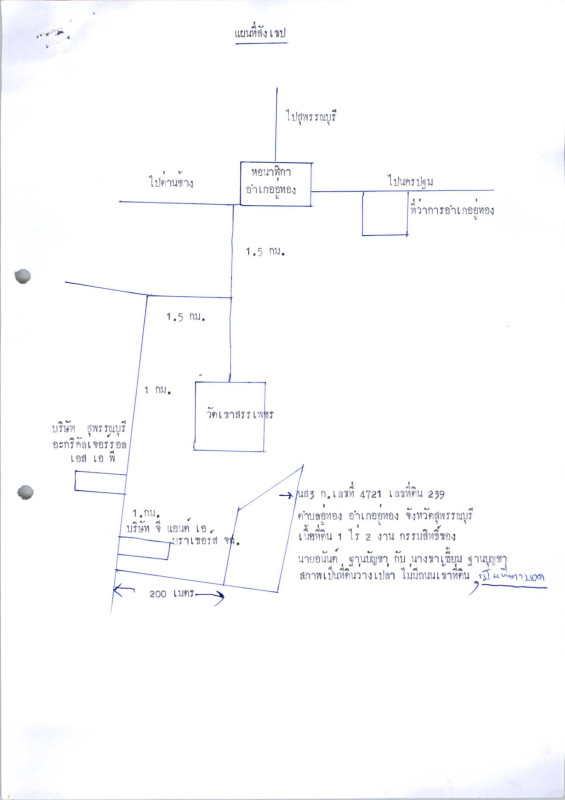 แผนที่สังเขป
ไปสุพรรณบุรี
หอนาฬิกา
อำเภออู่ทอง
ไปด่านช้าง
ไปนครปฐม
ที่ว่าการอำเภออู่ทอง
1.5 กม.
1.5 กม.
1 กม.
วัดเขาสรรเพชร
บริษัท สุพรรณบุรี
อะกริคัลเจอร์รอล
เอส เอ พี
นส3 ก.เลขที่ 4721 เลขที่ดิน 239
ตำบลอู่ทอง อำเภออู่ทอง จังหวัดสุพรรณบุรี
เนื้อที่ดิน 1 ไร่ 2 งาน กรรมสิทธิ์ของ
นายอนันต์ ฐานบัญชา กับ นางชาเซี้ยม ฐานบุญชา
สภาพเป็นที่ดินว่างเปล่า ไม่มีถนนเข้าที่ดิน
1.กม.
บริษัท จี แอนด์ เอ
บราเซอร์ส จก.
200 เมตร